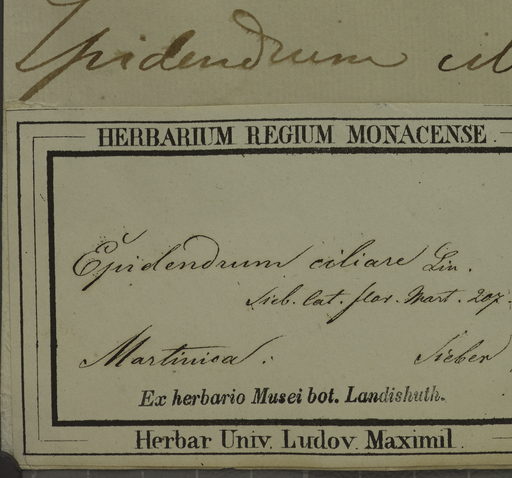 Epidendrum cil
HERBARIUM REGIUM MONACENSE.
Epidendrum ciliare Lin.
Sieb. Cat. flor. Mart. 207.
Martinica. Sieber
Ex herbario Musei bot. Landishuth.
Herbar Univ. Ludov. Maximil.